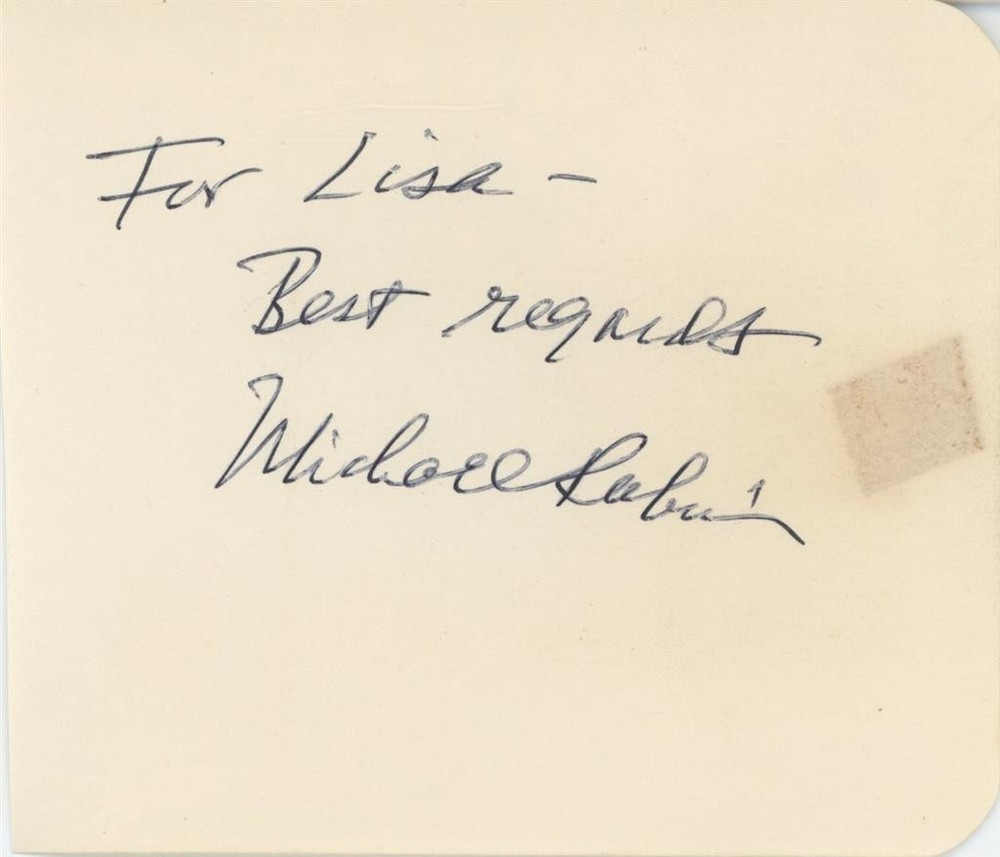 For Lisa –
Best regards
Michael Rabin